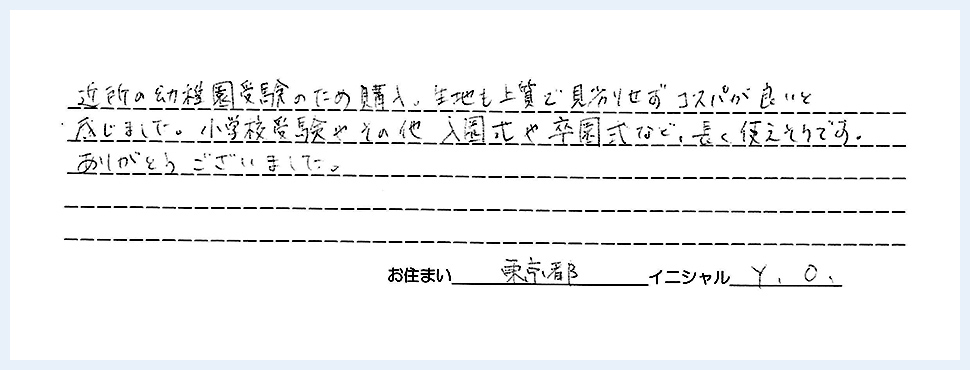 近所の幼稚園受験のため購入。生地も上質で見劣りせずコスパが良いと
感じました。小学校受験やその他 入園式や卒園式など、長く使えそうです。
ありがとうございました。
お住まい 東京都 イニシャル Y.O.